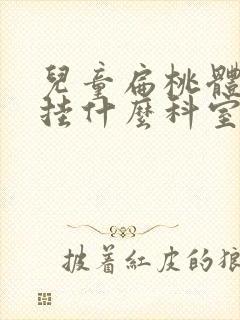 兒童扁桃體
挂什麼科室
披着紅皮的狼